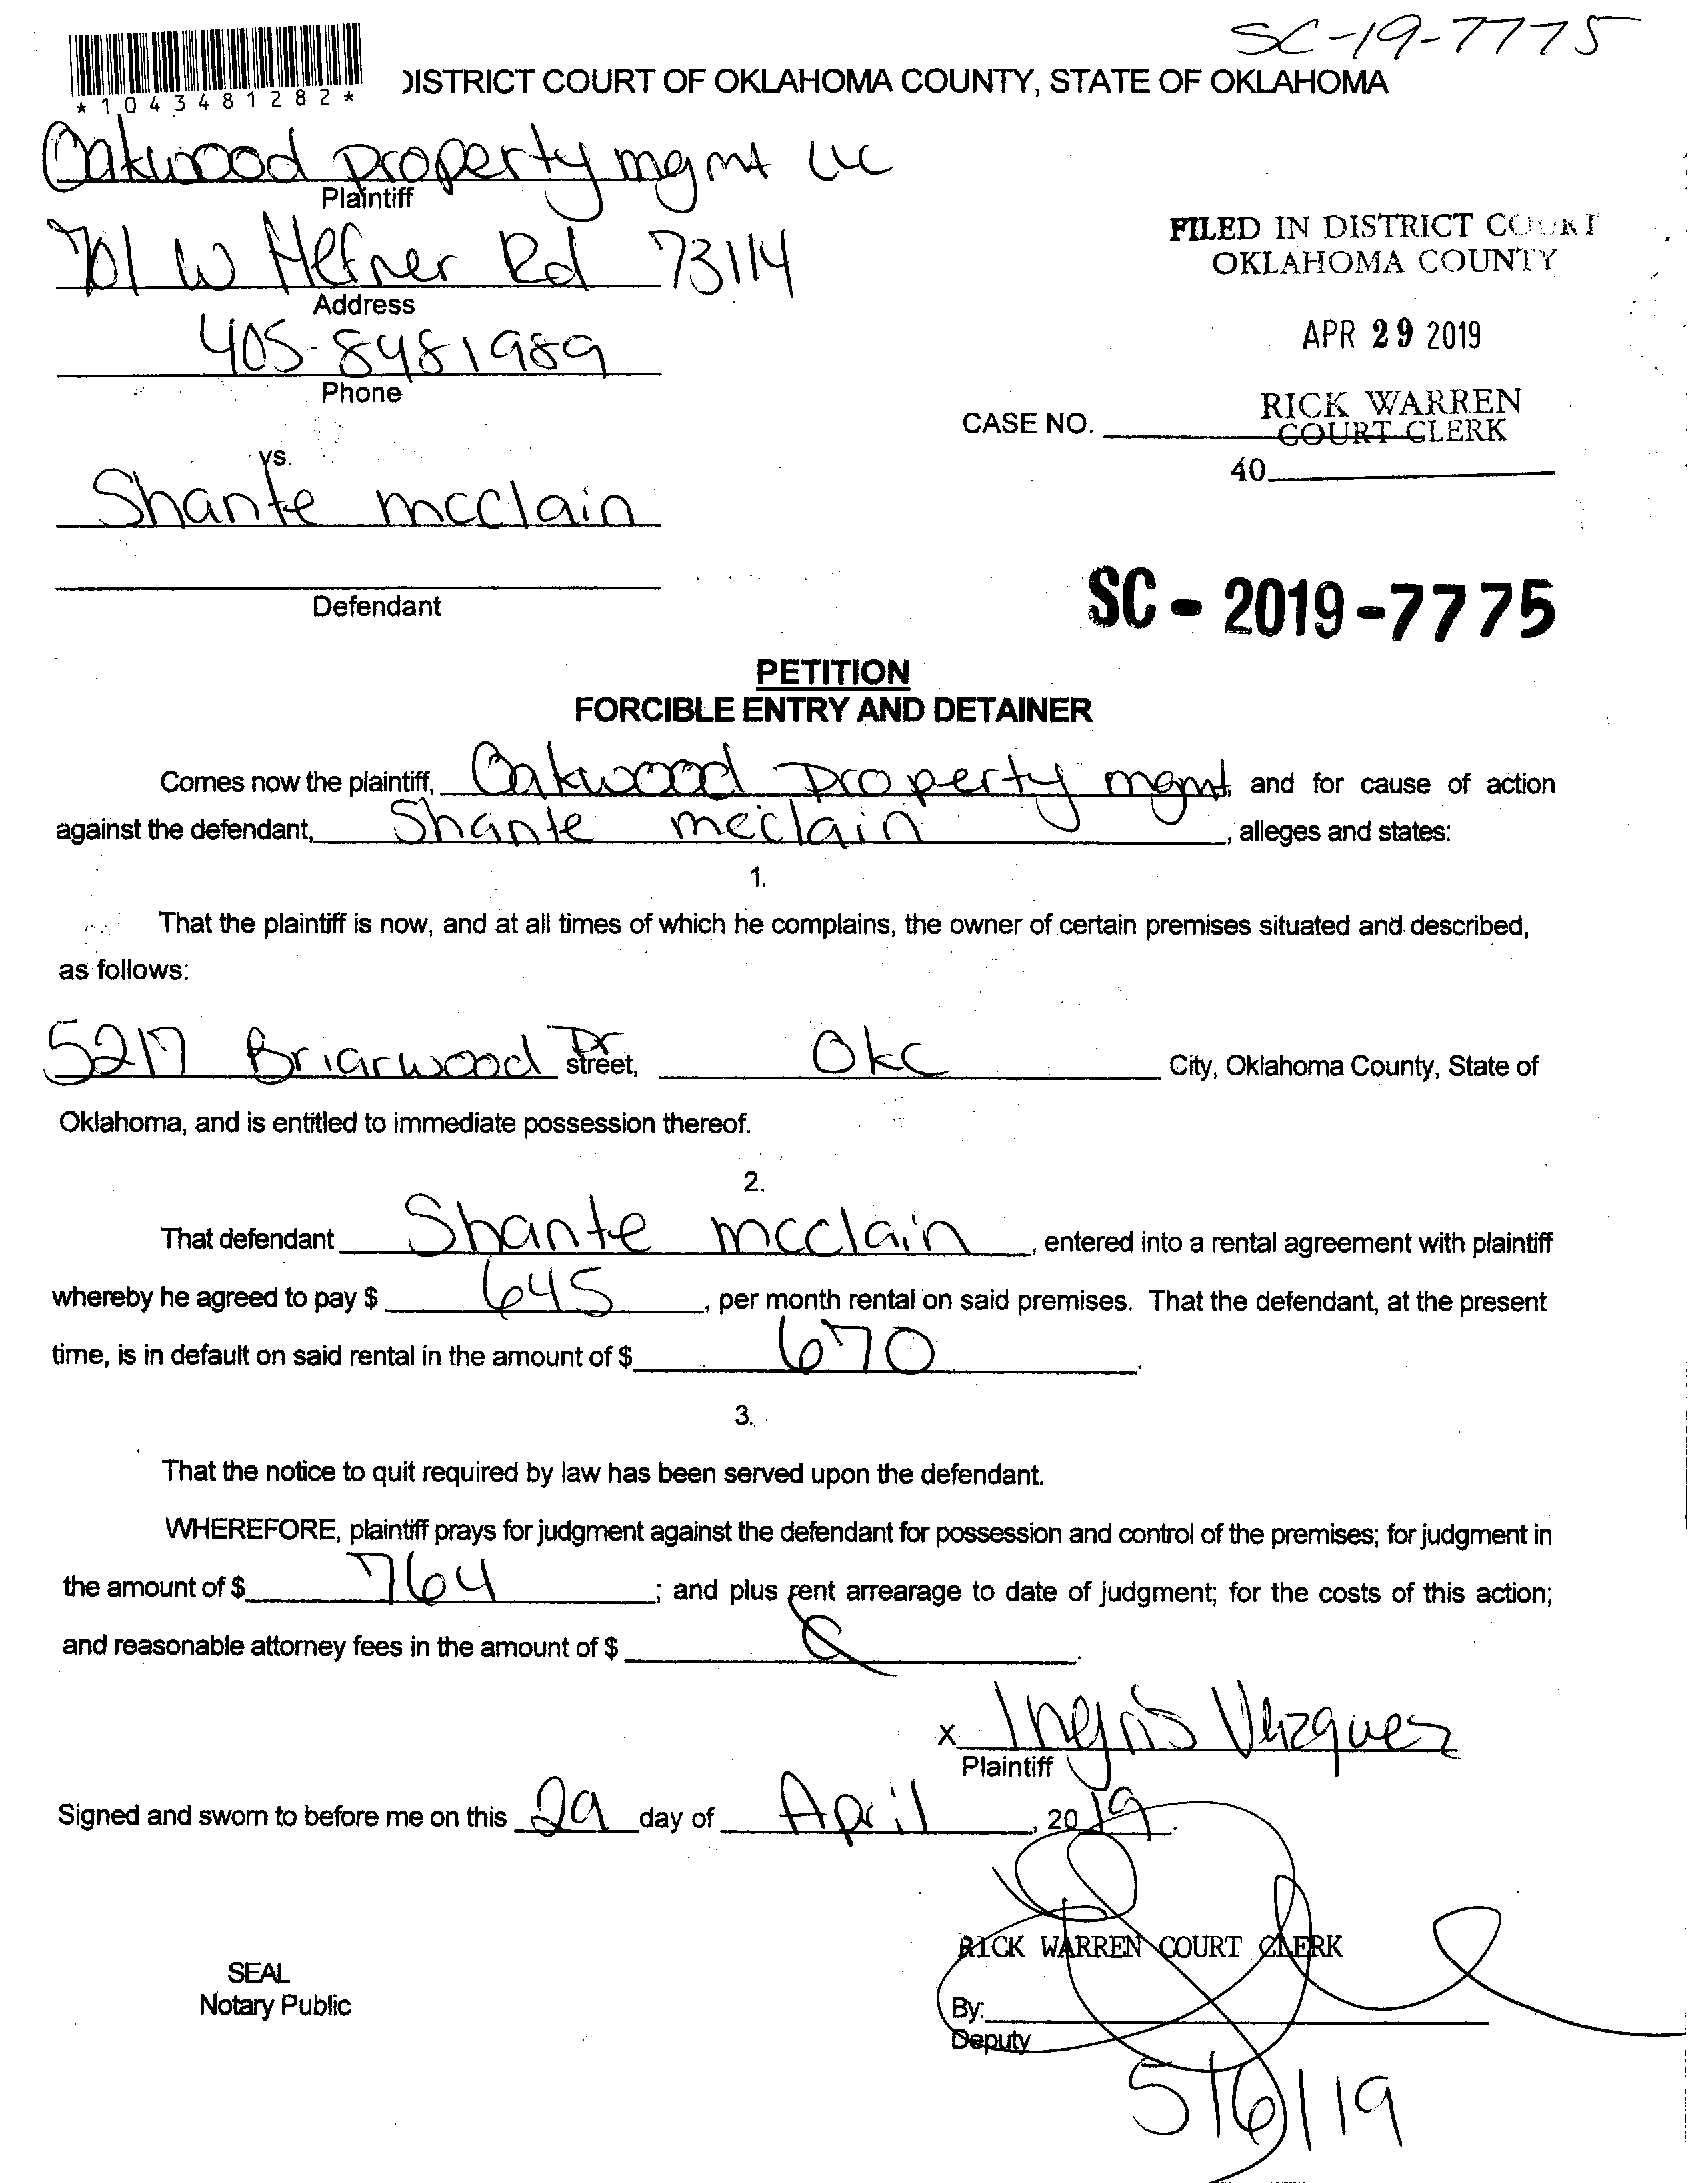 SC-19-7775
*1043481282*
DISTRICT COURT OF OKLAHOMA COUNTY, STATE OF OKLAHOMA
Oakwood property mgmt LLC
Plaintiff
701 W Hefner Rd 73114
Address
405-8481989
Phone
FILED IN DISTRICT COURT
OKLAHOMA COUNTY
APR 29 2019
RICK WARREN
COURT CLERK
CASE NO.
40
vs.
Shante mcclain
Defendant
SC - 2019-7775
PETITION
FORCIBLE ENTRY AND DETAINER
Comes now the plaintiff, Oakwood property mgmt, and for cause of action
against the defendant, Shante mcclain, alleges and states:
1.
That the plaintiff is now, and at all times of which he complains, the owner of certain premises situated and described,
as follows:
5217 Briarwood Dr street, Okc City, Oklahoma County, State of
Oklahoma, and is entitled to immediate possession thereof.
2.
That defendant Shante mcclain, entered into a rental agreement with plaintiff
whereby he agreed to pay $ 645, per month rental on said premises. That the defendant, at the present
time, is in default on said rental in the amount of $ 670.
3.
That the notice to quit required by law has been served upon the defendant.
WHEREFORE, plaintiff prays for judgment against the defendant for possession and control of the premises; for judgment in
the amount of $ 764; and plus rent arrearage to date of judgment; for the costs of this action;
and reasonable attorney fees in the amount of $
x Ingris Vazquez
Plaintiff
Signed and sworn to before me on this 29 day of April, 2019.
RICK WARREN COURT CLERK
SEAL
Notary Public
By:
Deputy
5/6/19